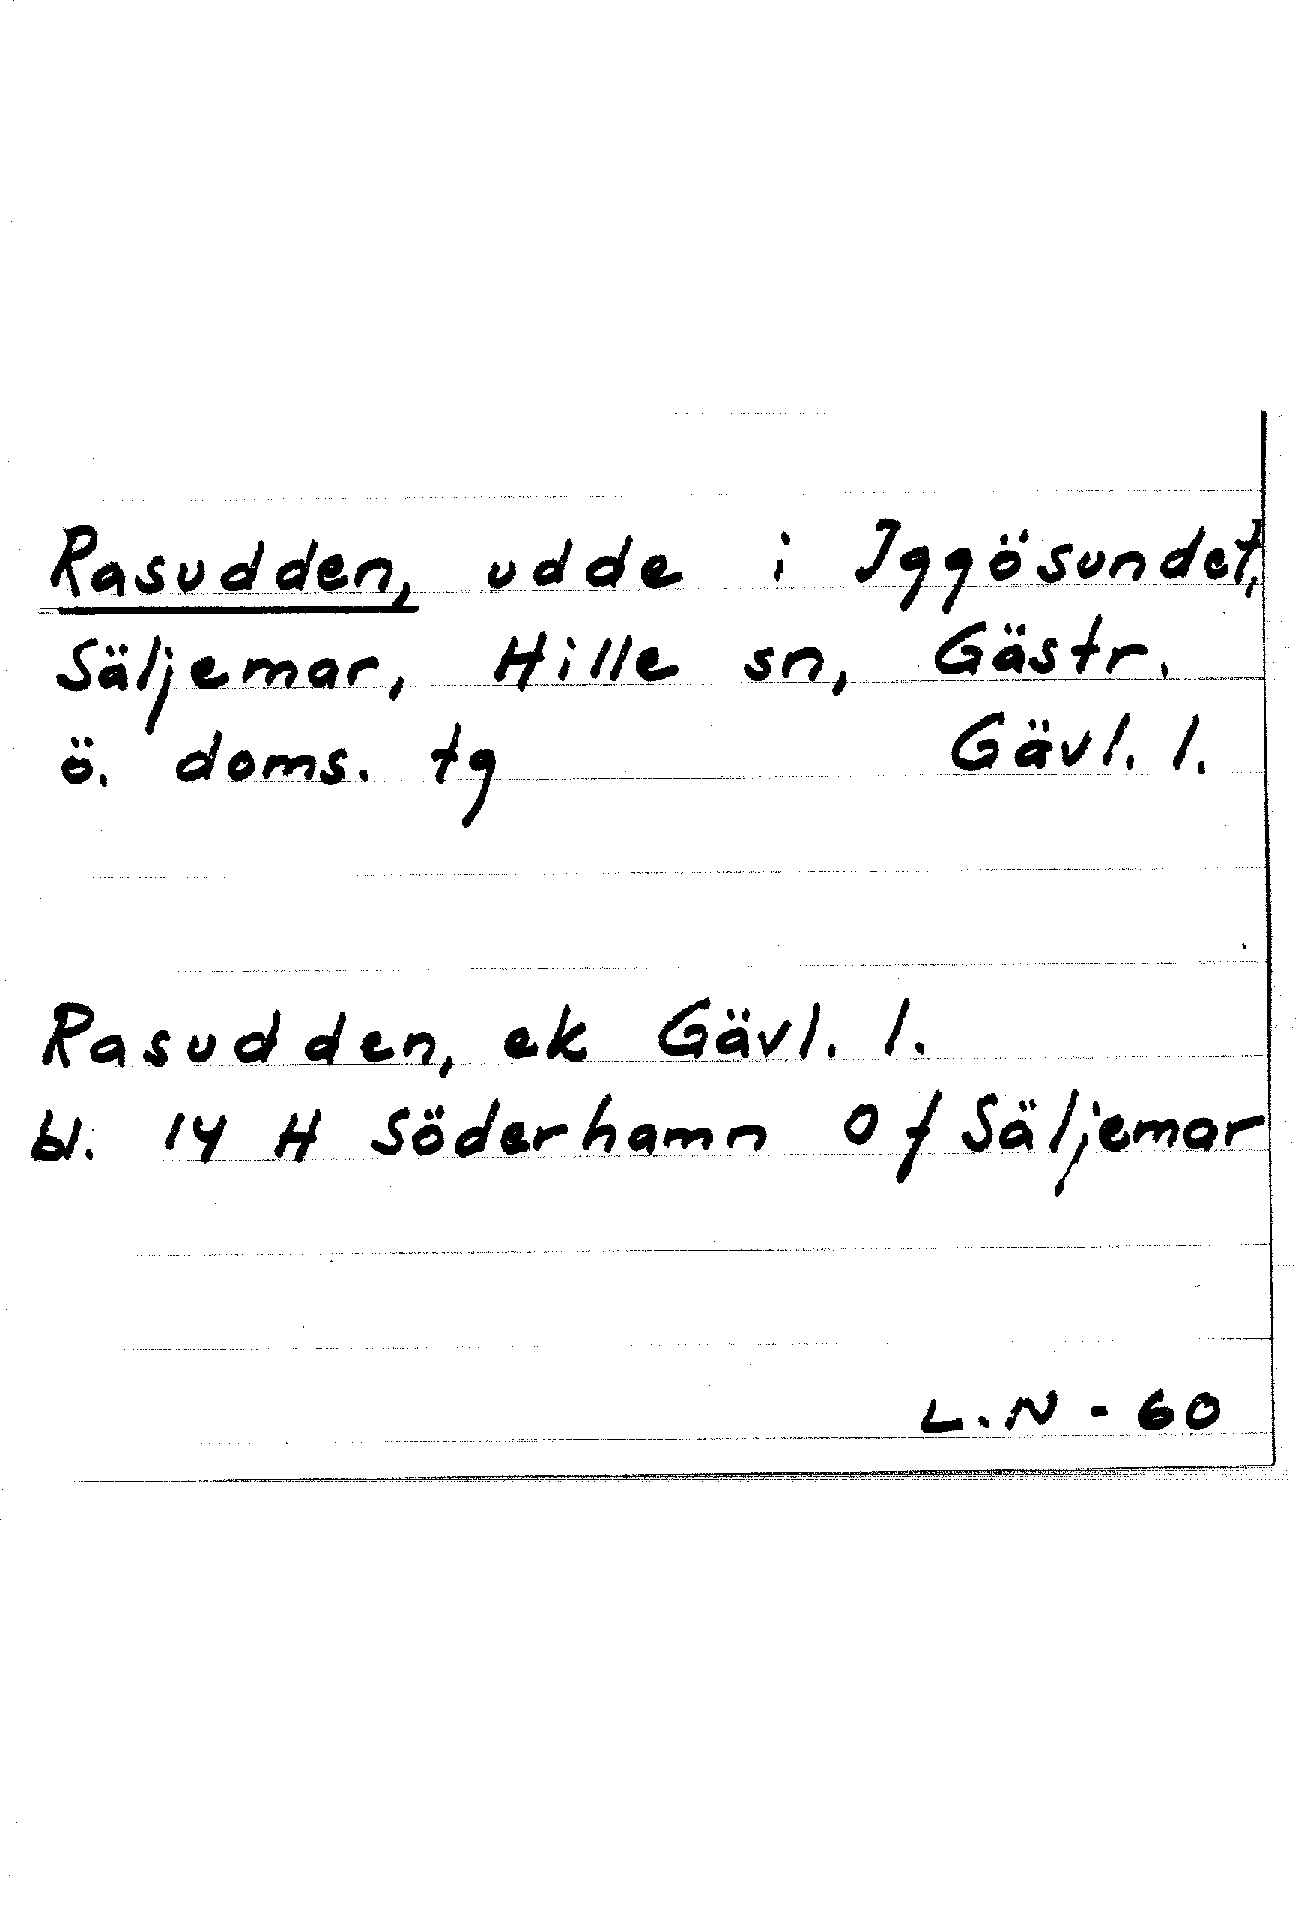 Rasudden, udde i Iggösundet,
Säljemar, Hille sn, Gästr.
ö. doms. tg Gävl. l.
Rasudden, ek Gävl. l.
bl. 14 H Söderhamn 0 f Säljemar
L.N - 60